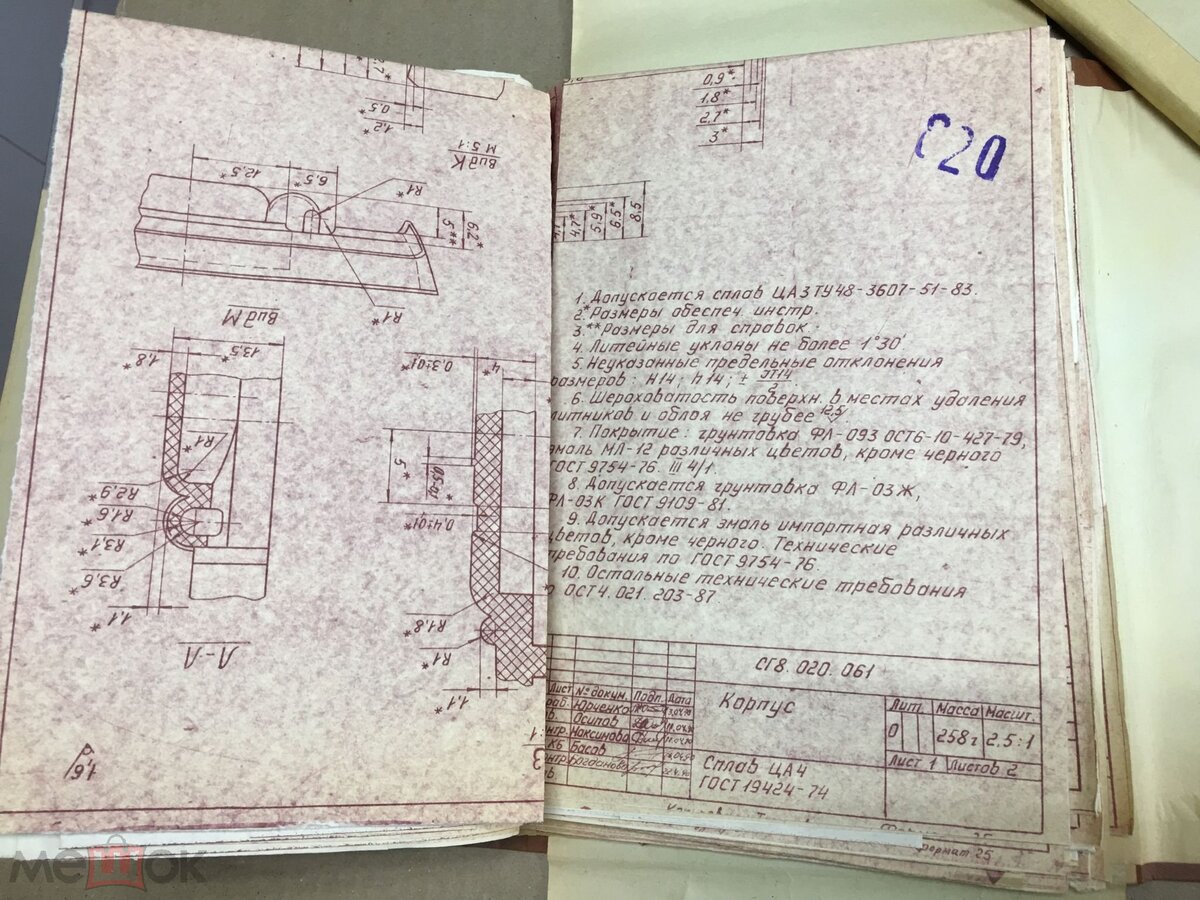 2,7*
0,5*
1,2*
Вид К
М 5:1
12,5*
6,5*
R1*
6,2*
5**
R1*
Вид М
13,5*
1,8*
R1*
R2,9*
R1,6*
R3,1*
R3,6*
1,1*
А-А
0,3±0,1*
4*
5*
0,4±0,1*
R1,8*
R1*
1,1*
1,6
3
0,9*
1,8*
2,7*
3*
С20
4,7*
5,9*
6,5*
8,5
1. Допускается сплав ЦА3 ТУ48-3607-51-83.
2.*Размеры обеспеч. инстр.
3.**Размеры для справок.
4. Литейные уклоны не более 1°30'
5. Неуказанные предельные отклонения
размеров: H14; h14; ± IT14/2.
6. Шероховатость поверхн. в местах удаления
литников и облоя не грубее 12,5
7. Покрытие: грунтовка ФЛ-093 ОСТ6-10-427-79,
эмаль МЛ-12 различных цветов, кроме черного
ГОСТ 9754-76. III 4/1.
8. Допускается грунтовка ФЛ-03Ж,
ФЛ-03К ГОСТ 9109-81.
9. Допускается эмаль импортная различных
цветов, кроме черного. Технические
требования по ГОСТ 9754-76.
10. Остальные технические требования
ОСТ4.021.203-87.
СГ8.020.061
Лист № докум. Подп. Дата
Юрченко
Осипов
Максимова
Басов
Богданова
Корпус
Лит. Масса Масшт.
О 258г 2,5:1
Лист 1 Листов 2
Сплав ЦА4
ГОСТ 19424-74
формат 25
мешок